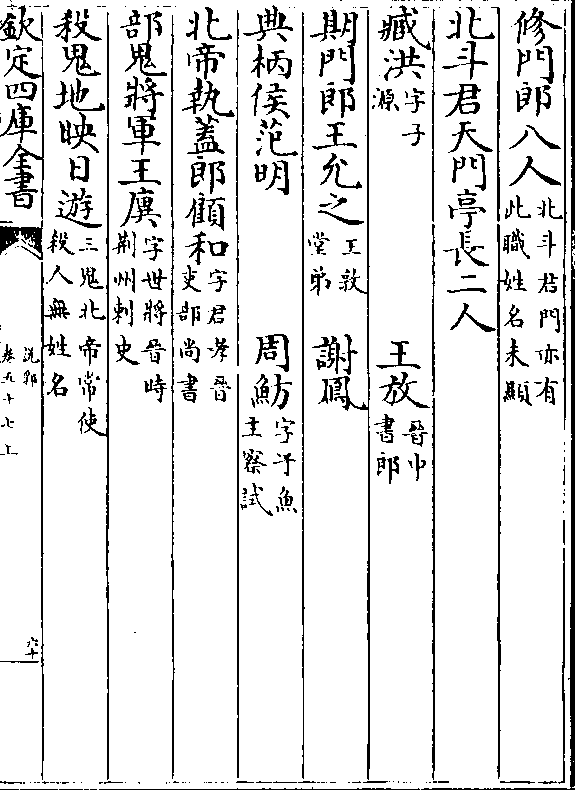 修門郎八人北斗君門亦有此職姓名未顯
北斗君天門亭長二人
臧洪字子源 王放晉中書郎
期門郎王允之王敦堂弟 謝鳳
典柄侯范明 周魴字子魚主察試
北帝執蓋郎顧和字君孝晉吏部尚書
部鬼將軍王廙字世將晉時荆州刺史
殺鬼地映日遊三鬼北帝常使殺人無姓名
欽定四庫全書
說郛
卷五十七上
六十